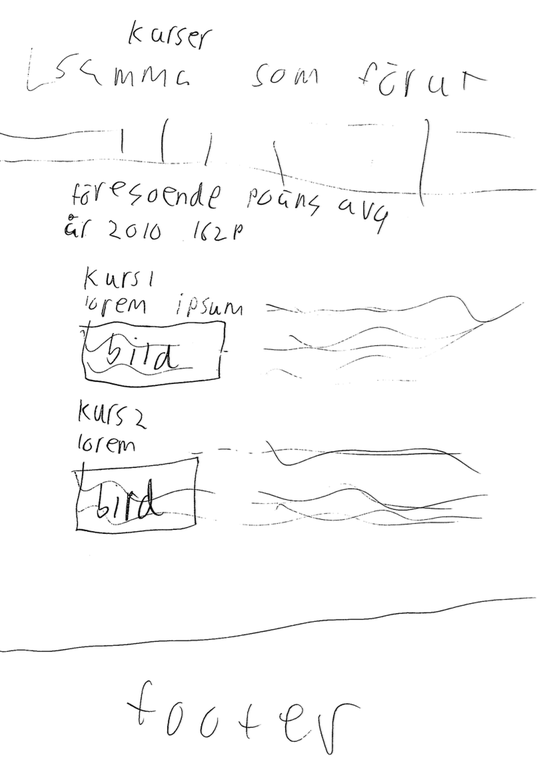 kurser
samma som förut
föresoende poäng avg
år 2010 162P
kurs 1
lorem ipsum
bild
kurs 2
lorem
bild
footer